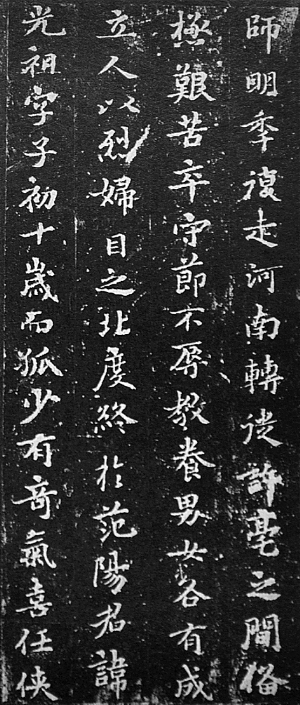 師明秊復走河南轉徙許亳之間俻
極艱苦卒守節不辱教養男女各有成
立人以烈婦目之北度終扵范陽君諱
光祖字子初十歲而孤少有奇氣喜任俠